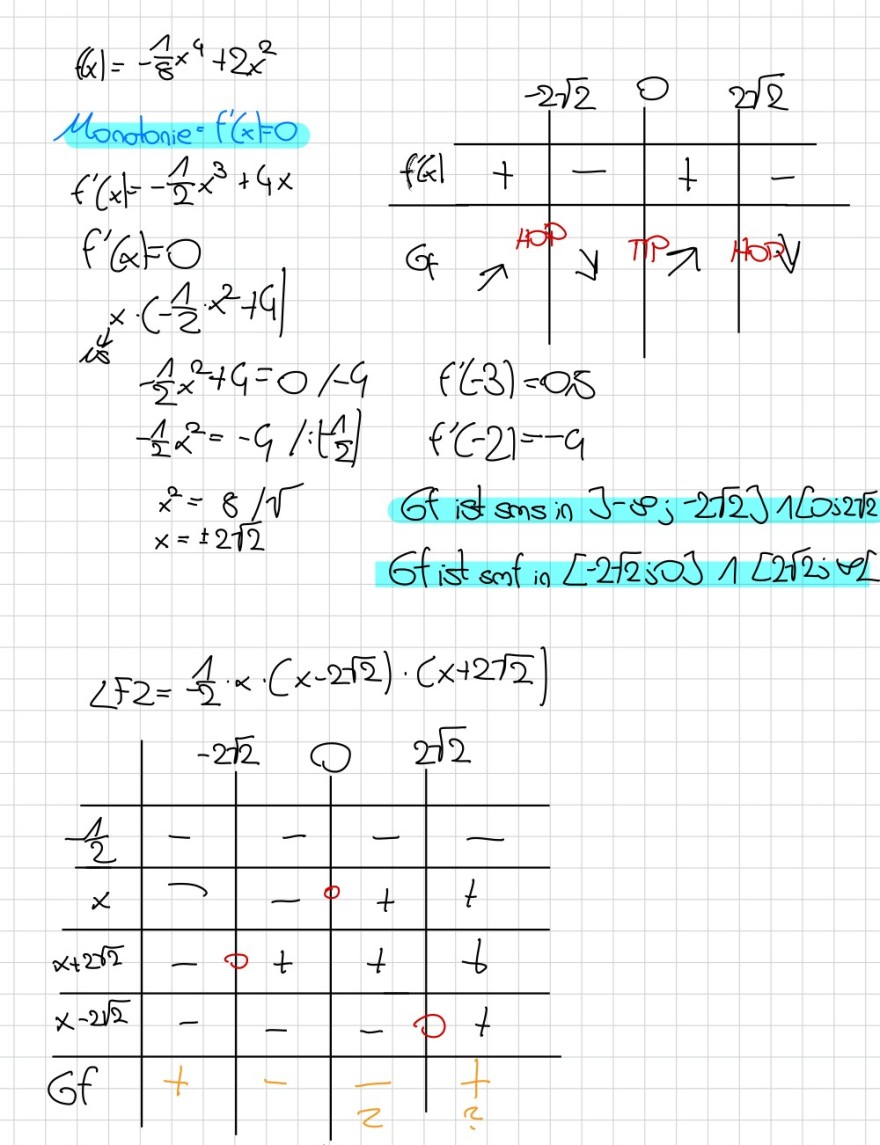 f(x) = -1/8 x⁴ + 2x²
Monotonie = f'(x)=0
f'(x) = -1/2 x³ + 4x
f'(x)=0
x · (-1/2 · x² + 4)
-1/2 x² + 4 = 0 /-4
-1/2 x² = -4 /:(-1/2)
x² = 8 /√
x = ±2√2
-2√2 0 2√2
f'(x) + - + -
Gf ↗ HOP ↘ TIP ↗ HOP ↘
f'(-3) = 0,5
f'(-2) = -4
Gf ist sms in ]-∞; -2√2] ∧ [0; 2√2
Gf ist smf in [-2√2; 0] ∧ [2√2; ∞[
LFZ = -1/2 · x · (x-2√2) · (x+2√2)
-2√2 0 2√2
-1/2 - - - -
x - - 0 + +
x+2√2 - 0 + + +
x-2√2 - - - 0 +
Gf + - - +
? ?